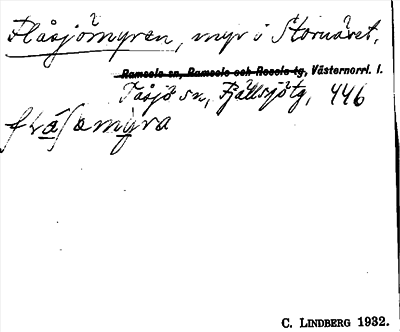 Flåsjömyren, myr i Stornäset,
Ramsele sn, Ramsele och Resele tg, Västernorrl. l.
Tåsjö sn, Fjällsjö tg, 446
C. LINDBERG 1932.